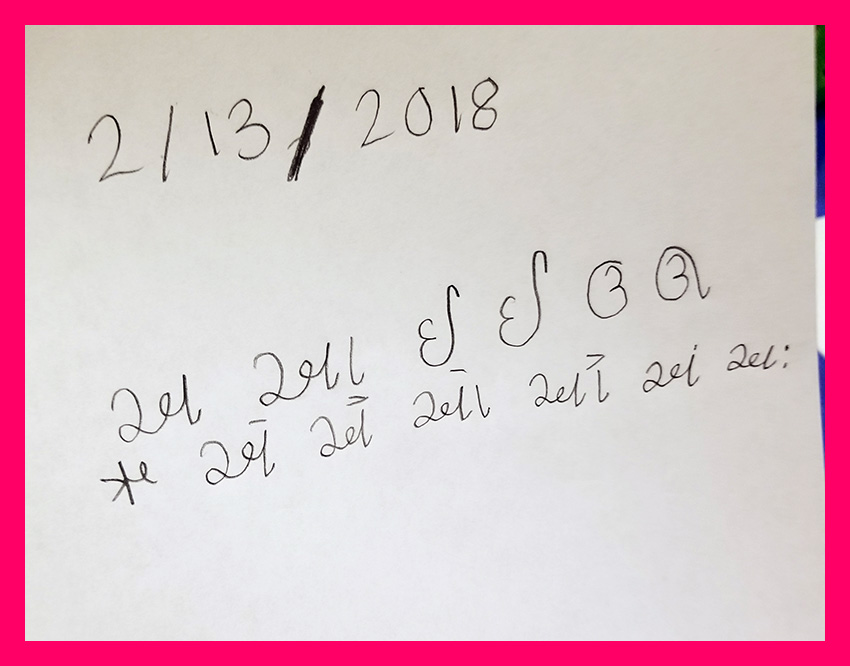 2/13/2018
અ આ ઇ ઈ ઉ ઊ
ઋ એ ઐ ઓ ઔ અં અઃ